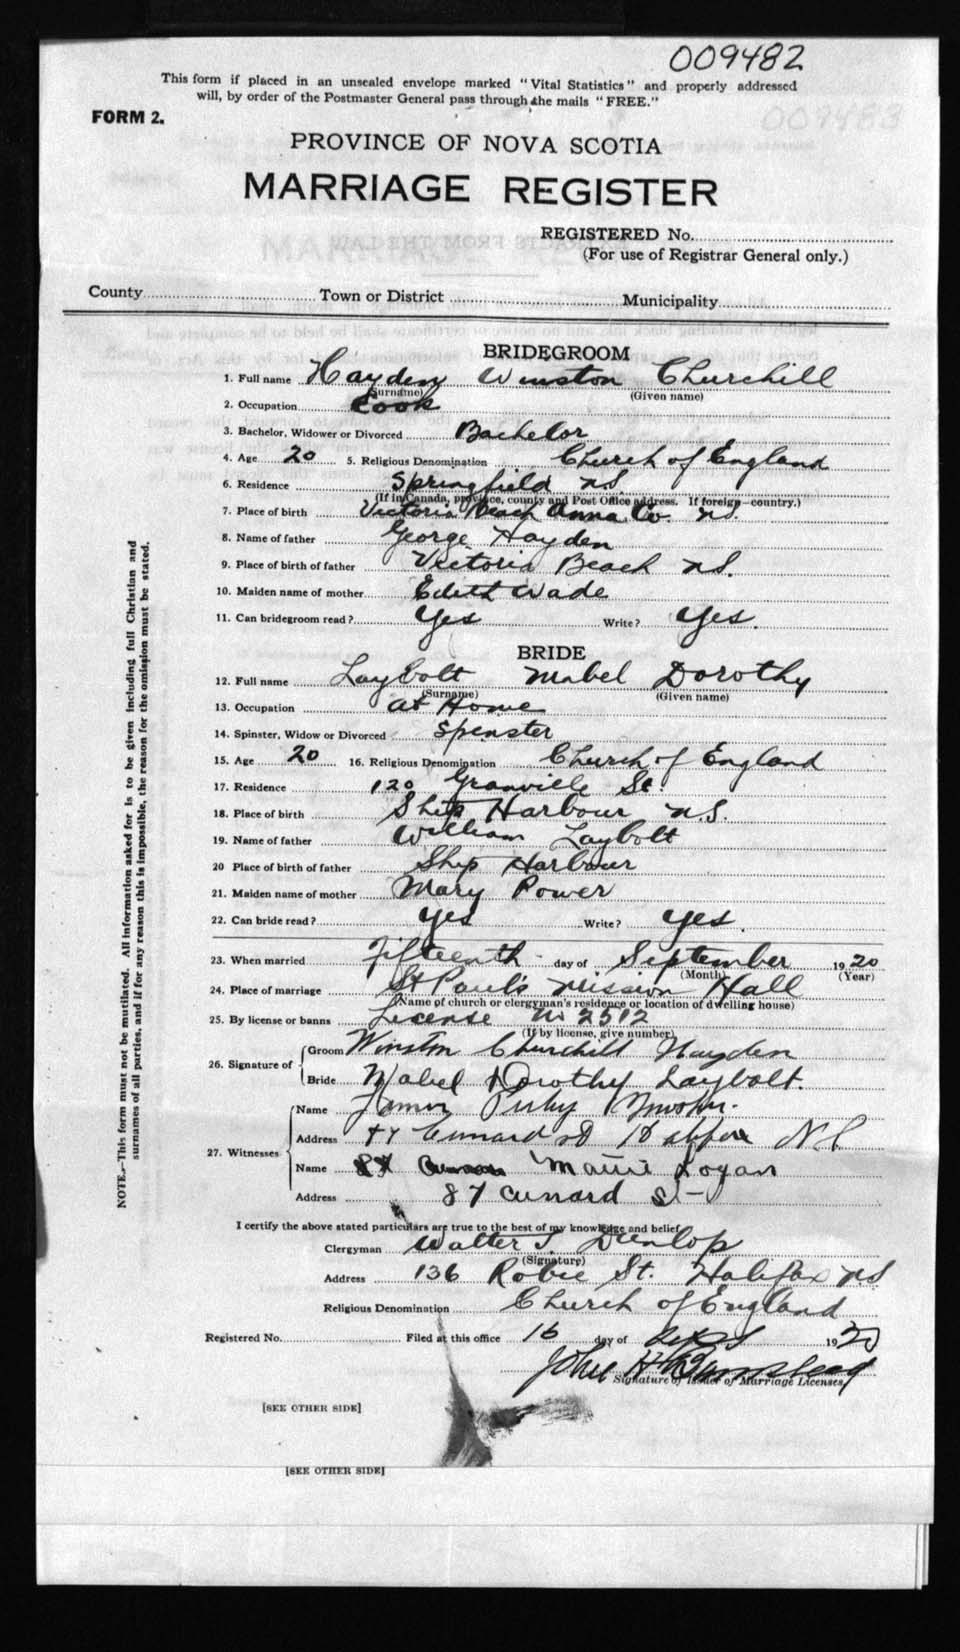 009482
This form if placed in an unsealed envelope marked "Vital Statistics" and properly addressed
will, by order of the Postmaster General pass through the mails "FREE."
FORM 2.
009483
PROVINCE OF NOVA SCOTIA
MARRIAGE REGISTER
REGISTERED No.
(For use of Registrar General only.)
County Town or District Municipality
BRIDEGROOM
1. Full name Hayden Winston Churchill
(Surname) (Given name)
2. Occupation Cook
3. Bachelor, Widower or Divorced Bachelor
4. Age 20 5. Religious Denomination Church of England
6. Residence Springfield N.S.
(If in Canada, province, county and Post Office address. If foreign—country.)
7. Place of birth Victoria Beach Anna. Co. N.S.
8. Name of father George Hayden
9. Place of birth of father Victoria Beach N.S.
10. Maiden name of mother Edith Wade
11. Can bridegroom read? Yes Write? Yes.
BRIDE
12. Full name Laybolt Mabel Dorothy
(Surname) (Given name)
13. Occupation at Home
14. Spinster, Widow or Divorced Spinster
15. Age 20 16. Religious Denomination Church of England
17. Residence 120 Granville St.
18. Place of birth Ship Harbour N.S.
19. Name of father William Laybolt
20 Place of birth of father Ship Harbour
21. Maiden name of mother Mary Power
22. Can bride read? Yes Write? Yes.
23. When married Fifteenth day of September 1920
(Month) (Year)
24. Place of marriage St Paul's Mission Hall
(Name of church or clergyman's residence or location of dwelling house)
25. By license or banns License No 2512
(If by license, give number)
26. Signature of Groom Winston Churchill Hayden
Bride Mabel Dorothy Laybolt.
27. Witnesses Name James
Address Cunard St Halifax N.S.
Name Mattie Logan
Address 87 Cunard St
I certify the above stated particulars are true to the best of my knowledge and belief
Clergyman Walter S. Dunlop
(Signature)
Address 136 Robie St. Halifax NS
Religious Denomination Church of England
Registered No. Filed at this office 16 day of Sept 1920
John H
Signature of Issuer of Marriage Licenses
[SEE OTHER SIDE]
[SEE OTHER SIDE]
NOTE.—This form must not be mutilated. All information asked for is to be given including full Christian and
surnames of all parties, and if for any reason this is impossible, the reason for the omission must be stated.